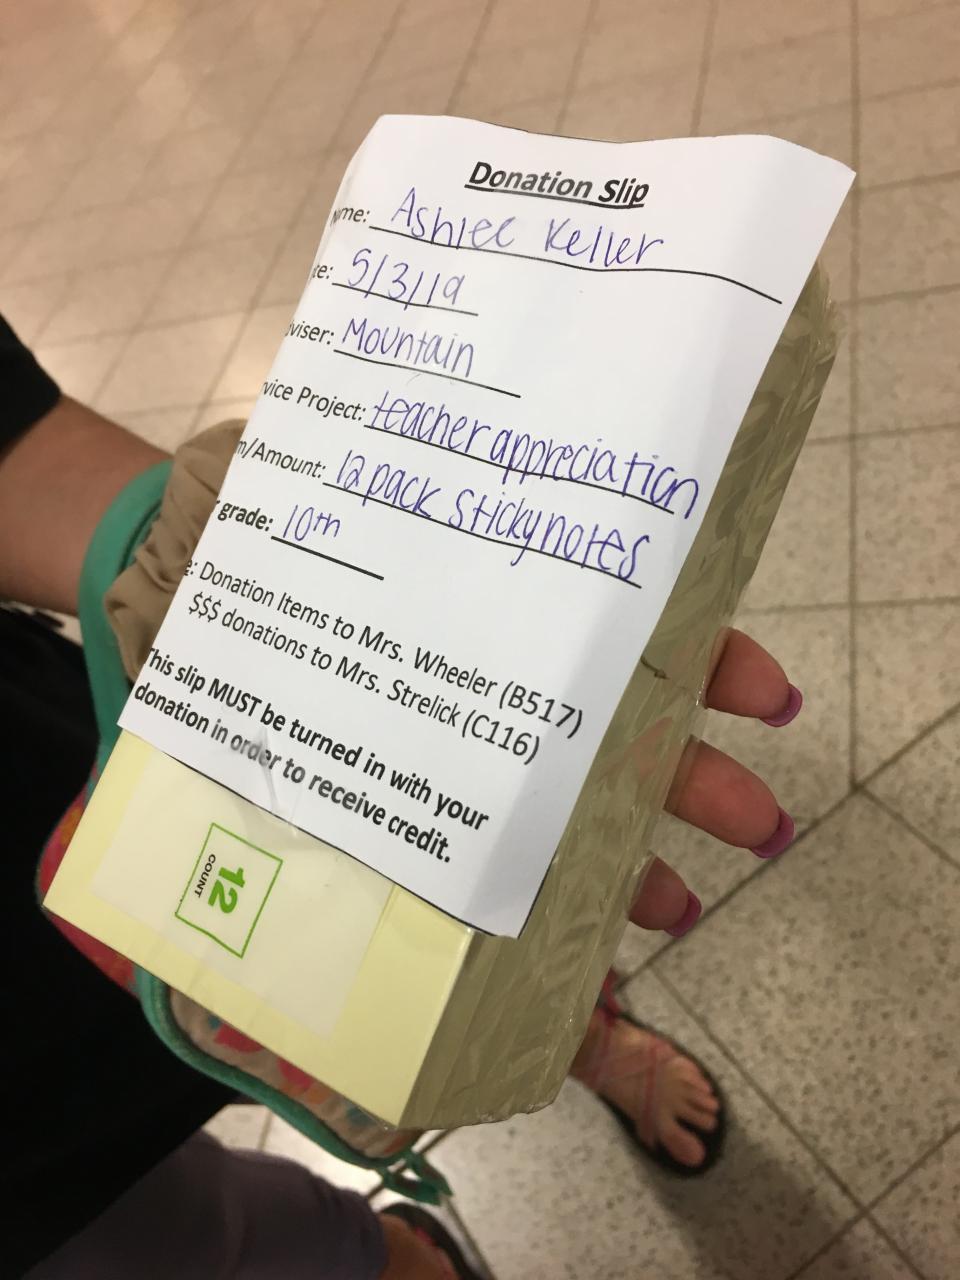 Donation Slip
me: Ashlee Keller
te: 5/3/19
viser: Mountain
vice Project: teacher appreciation
m/Amount: 12 pack sticky notes
r grade: 10th
e: Donation Items to Mrs. Wheeler (B517)
$$$ donations to Mrs. Strelick (C116)
This slip MUST be turned in with your
donation in order to receive credit.
12
COUNT